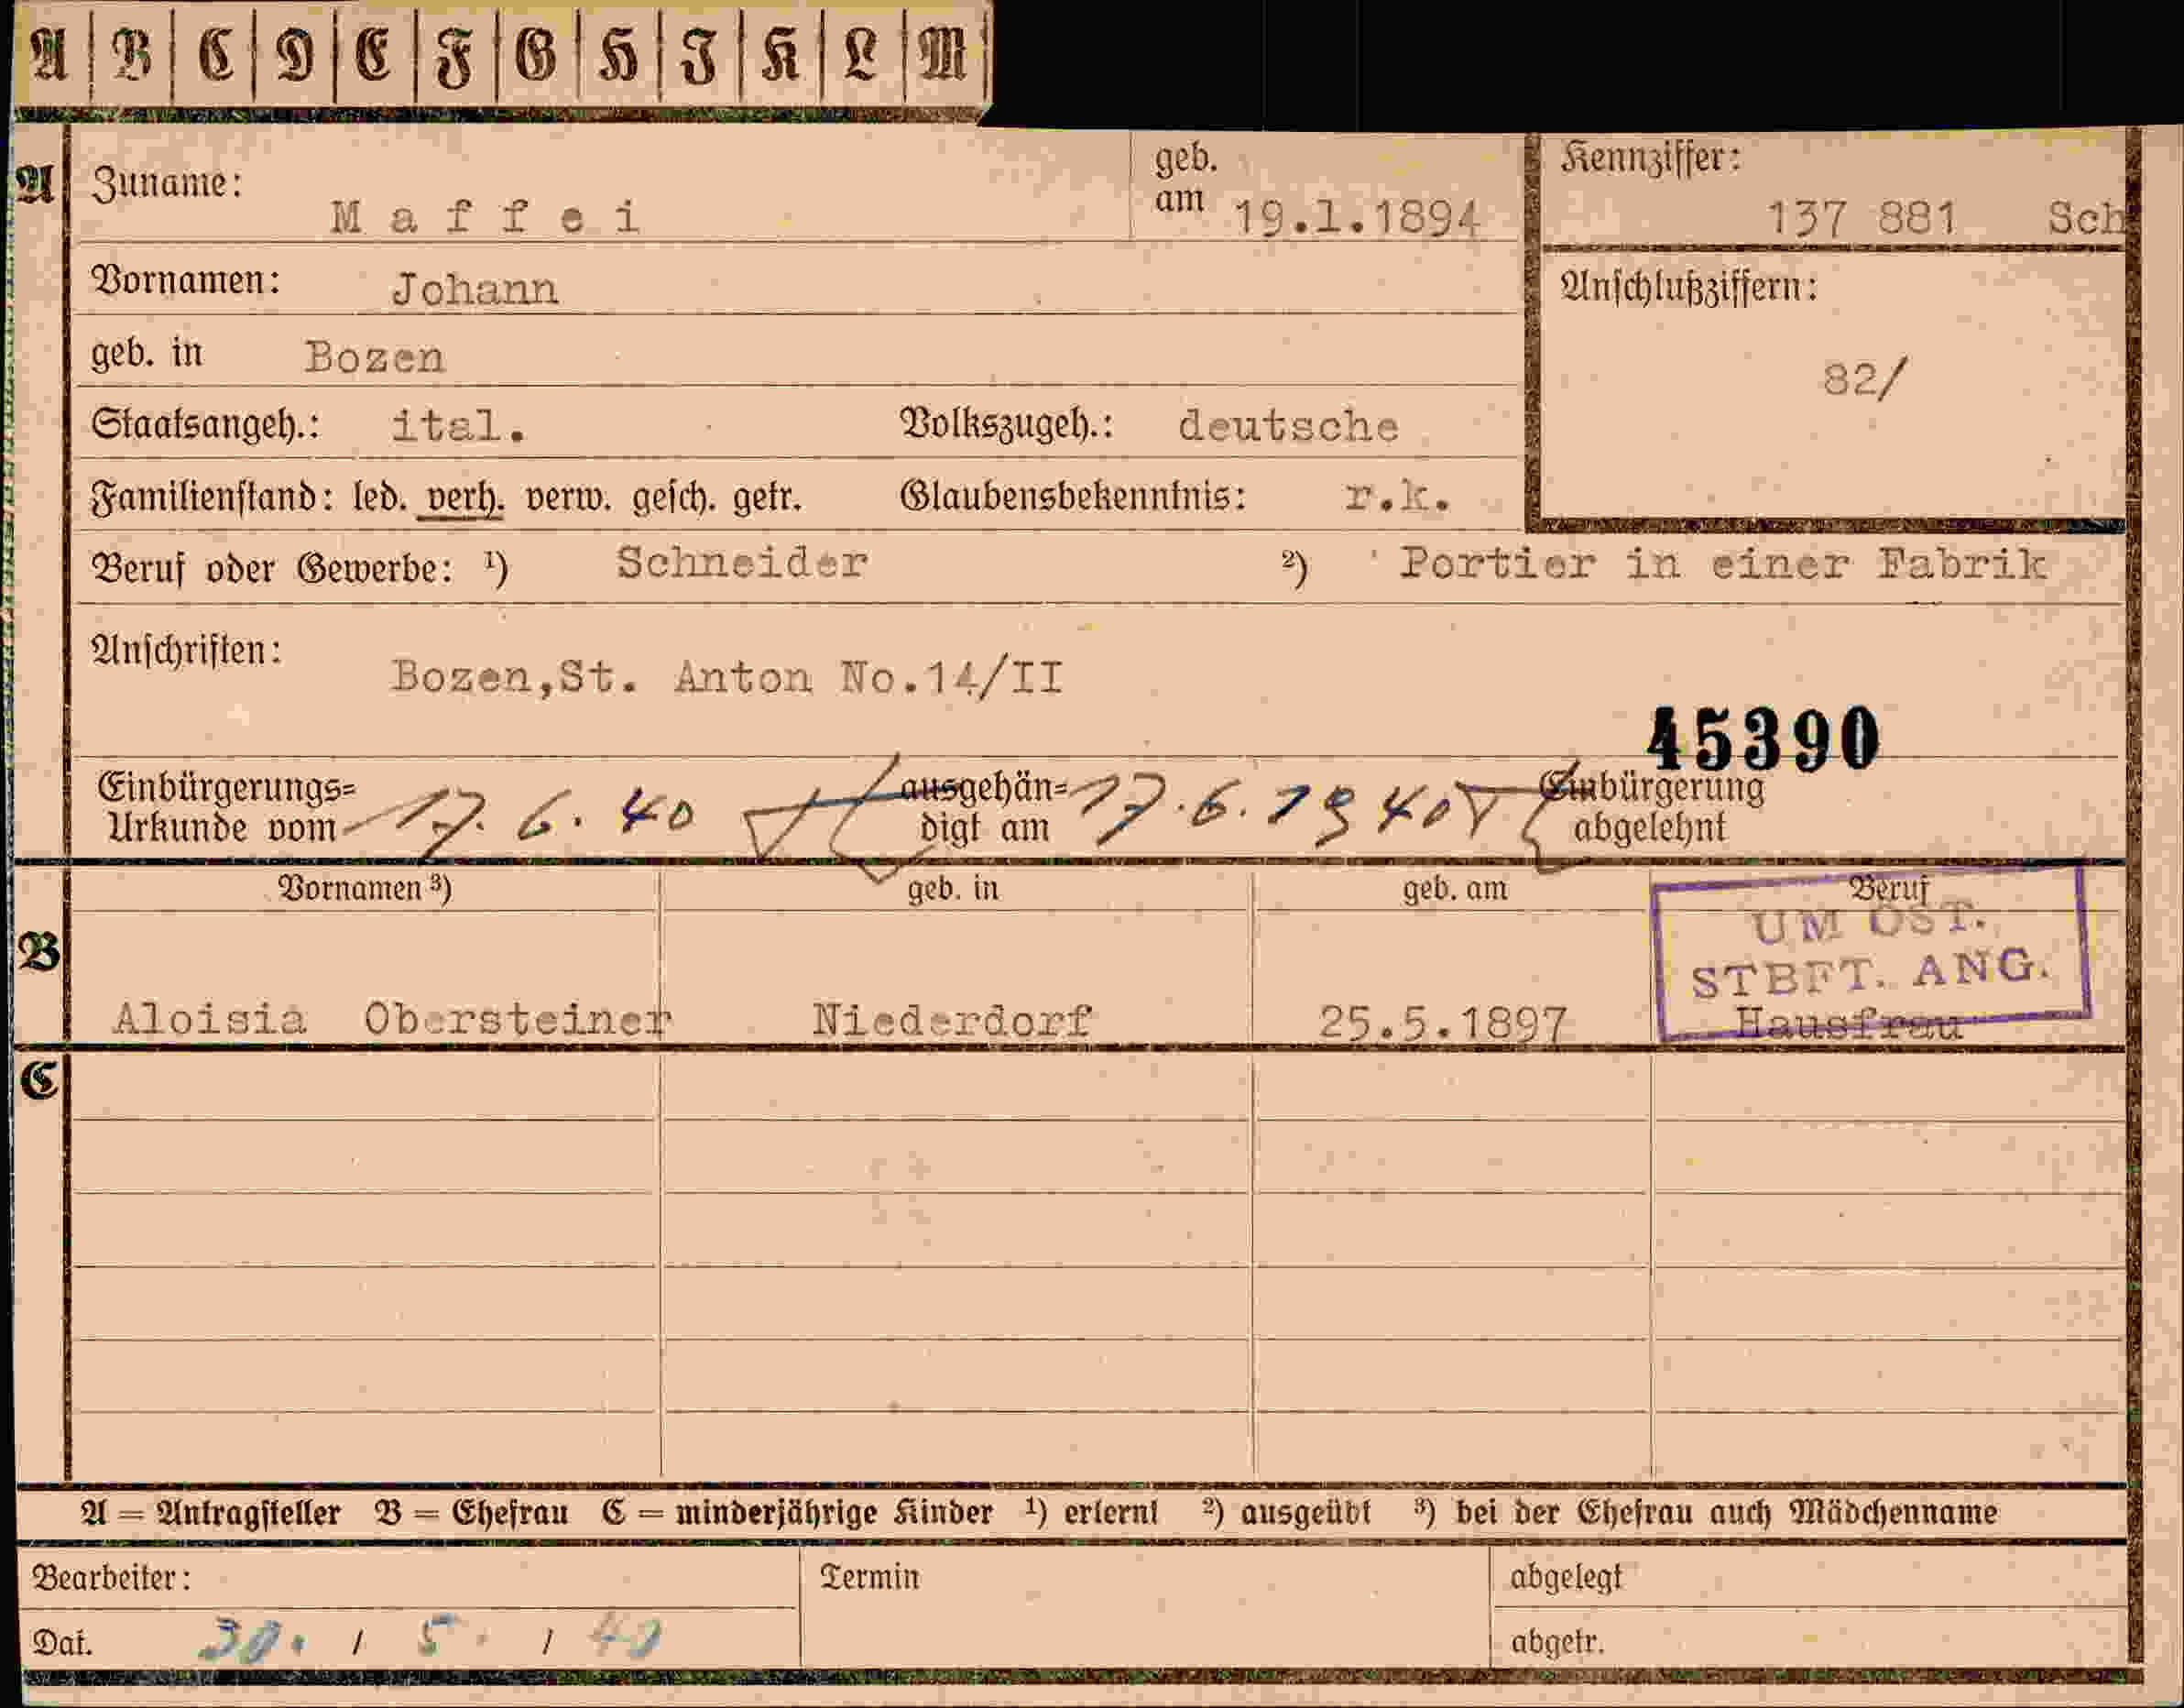 A B C D E F G H I K L M
A Zuname: Maffei geb. am 19.1.1894 Kennziffer: 137 881 Sch
Vornamen: Johann Anschlußziffern:
geb. in Bozen 82/
Staatsangeh.: ital. Volkszugeh.: deutsche
Familienstand: led. verh. verw. gesch. getr. Glaubensbekenntnis: r.k.
Beruf oder Gewerbe: ¹) Schneider ²) Portier in einer Fabrik
Anschriften: Bozen,St. Anton No.14/II
45390
Einbürgerungs= Urkunde vom 17. 6. 40 ausgehän= digt am 17.6.1940 Einbürgerung abgelehnt
Vornamen ³) geb. in geb. am Beruf
UM ÖST.
STBFT. ANG.
B Aloisia Obersteiner Niederdorf 25.5.1897 Hausfrau
C
A = Antragsteller B = Ehefrau C = minderjährige Kinder ¹) erlernt ²) ausgeübt ³) bei der Ehefrau auch Mädchenname
Bearbeiter: Termin abgelegt
Dat. 30. / 5. / 40 abgetr.